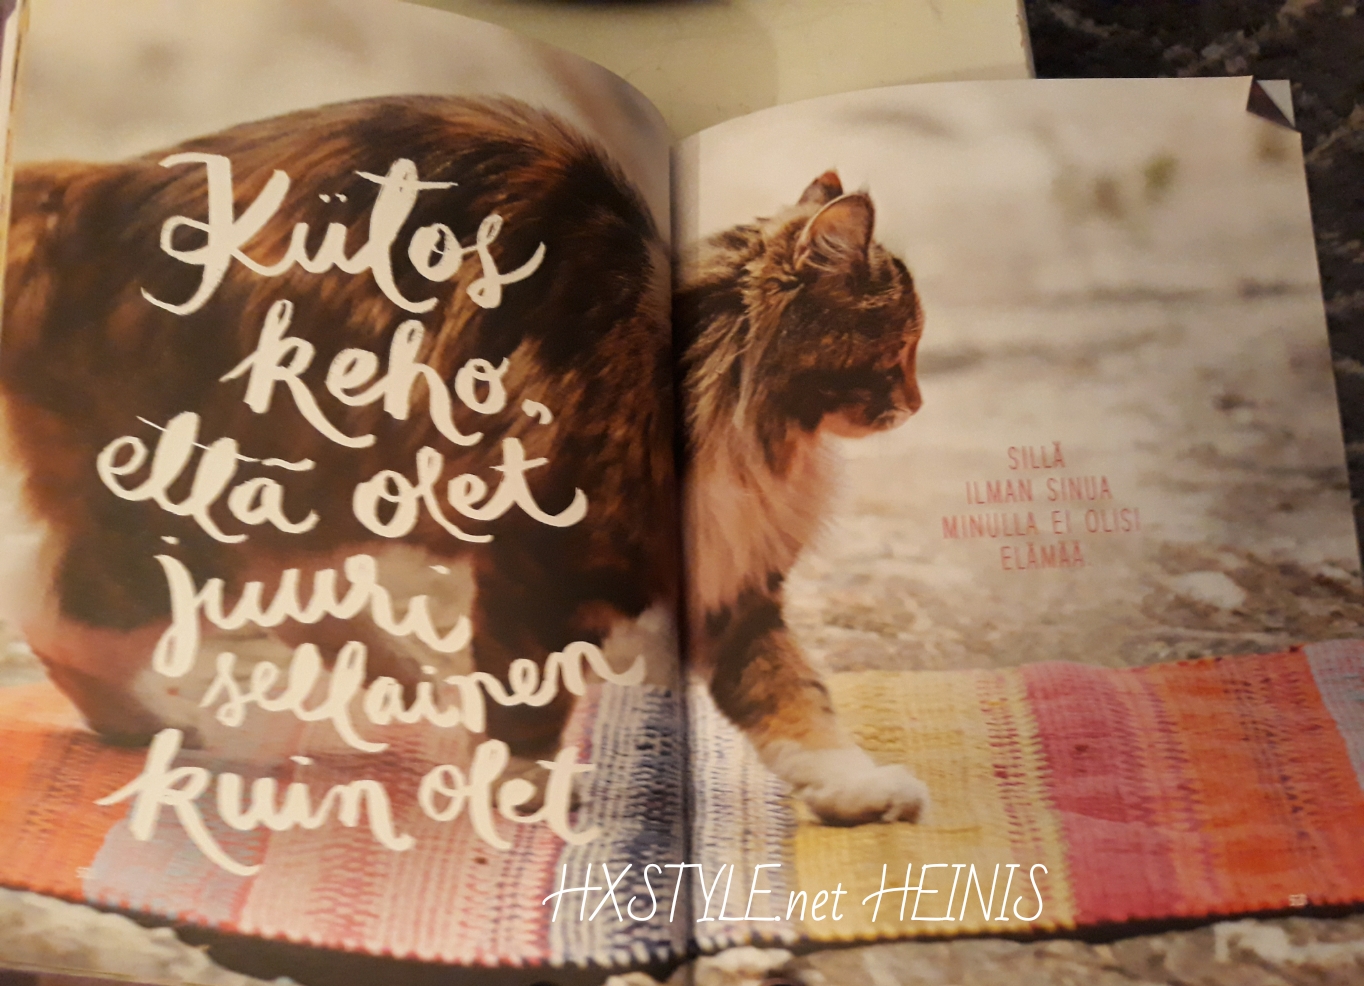 Kiitos
keho,
että olet
juuri
sellainen
kuin olet
SILLÄ
ILMAN SINUA
MINULLA EI OLISI
ELÄMÄÄ
HXSTYLE.net HEINIS